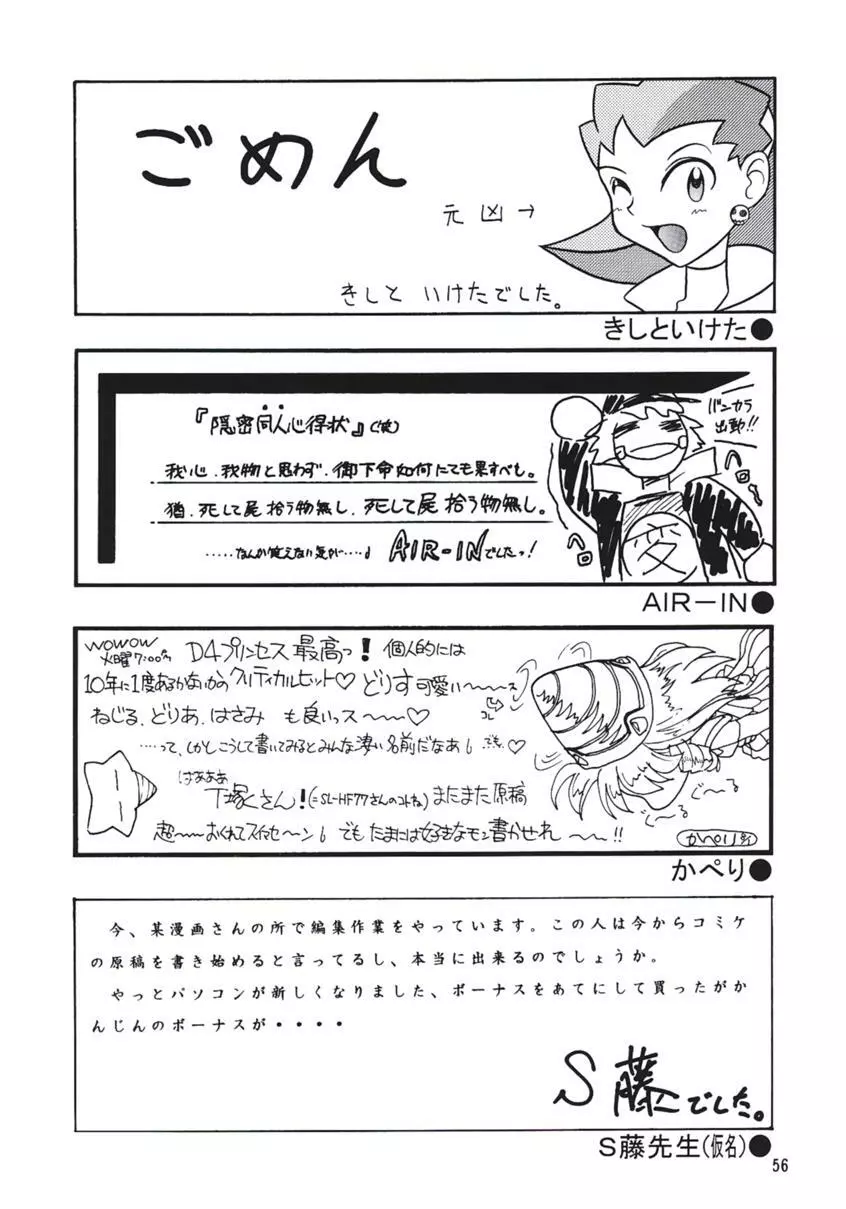 ごめん
元凶→
きしと いけたでした。
きしといけた●
『隠密同人心得状』(改)
バンカラ
出動!!
我心、我物と思わず、御下命如何にても果すべし。
猶、死して屍拾う物無し、死して屍拾う物無し。
‥‥‥なんか覚えない気が‥‥♪ AIR-INでしたっ!
ヘロ
ヘロ
AIR－IN●
WOWOW
火曜7:00〜
D4プリンセス最高っ! 個人的には
10年に1度あるかないかのクリティカルヒット♡ どりす可愛い〜〜〜ス
コレ
ねじる、どりあ、はさみ も良いっス〜〜♡
‥‥って、しかしこうして書いてみるとみんな凄い名前だなあ でも♡
はあああ
T塚くさん!(=SL-HF77さんのコトね)またまた原稿
超〜〜おくれてスイませ〜ン でもたまには好きなモン書かせれ〜〜!!
ぐ〜る
ぐ〜る
かぺり
かぺり●
今、某漫画さんの所で編集作業をやっています。この人は今からコミケ
の原稿を書き始めると言ってるし、本当に出来るのでしょうか。
やっとパソコンが新しくなりました、ボーナスをあてにして買ったがか
んじんのボーナスが・・・・
S藤でした。
S藤先生(仮名)●
56